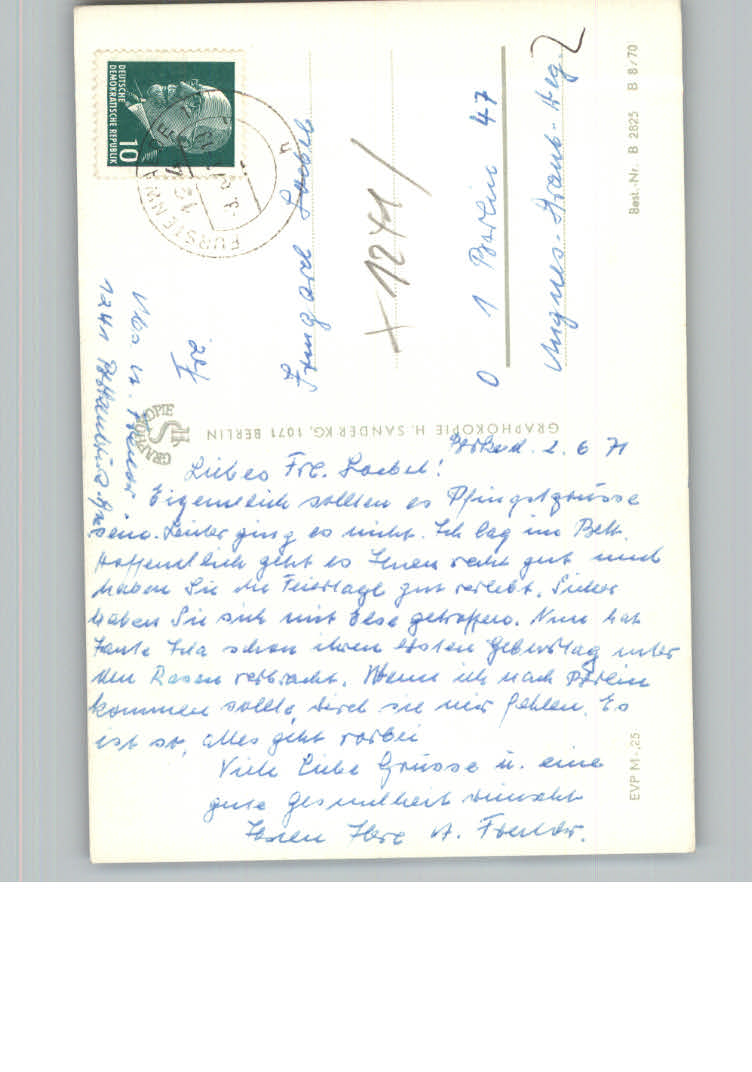 DEUTSCHE
DEMOKRATISCHE REPUBLIK
10
FÜRSTENWA
Frl
Irmgard Loebel
+ 1241/
1 Berlin 47
Agnes-Straub-Weg 2
Abs. A.
1241
GRAPHOKOPIE
GRAPHOKOPIE H. SANDER KG, 1071 BERLIN
Best.-Nr. B 2825 B 8/70
EVP M -,25
2.6.71
Liebes Frl. Loebel!
Eigentlich sollten es Pfingstgrüsse
sein. Leider ging es nicht. Ich lag im Bett.
Hoffentlich geht es Ihnen recht gut und
haben Sie die Feiertage gut verlebt. Sicher
haben Sie sich mit Else getroffen. Nun hat
Tante Ida schon ihren ersten Geburtstag unter
den Rasen verbracht. Wenn ich nach Berlin
kommen sollte, wird sie mir fehlen. Es
ist so, alles geht vorbei
Viele liebe Grüsse u. eine
gute Gesundheit wünscht
Ihnen Ihre A.